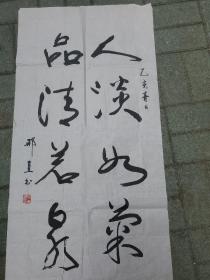 人淡如菊
乙亥春日
品清若泉
邢
书